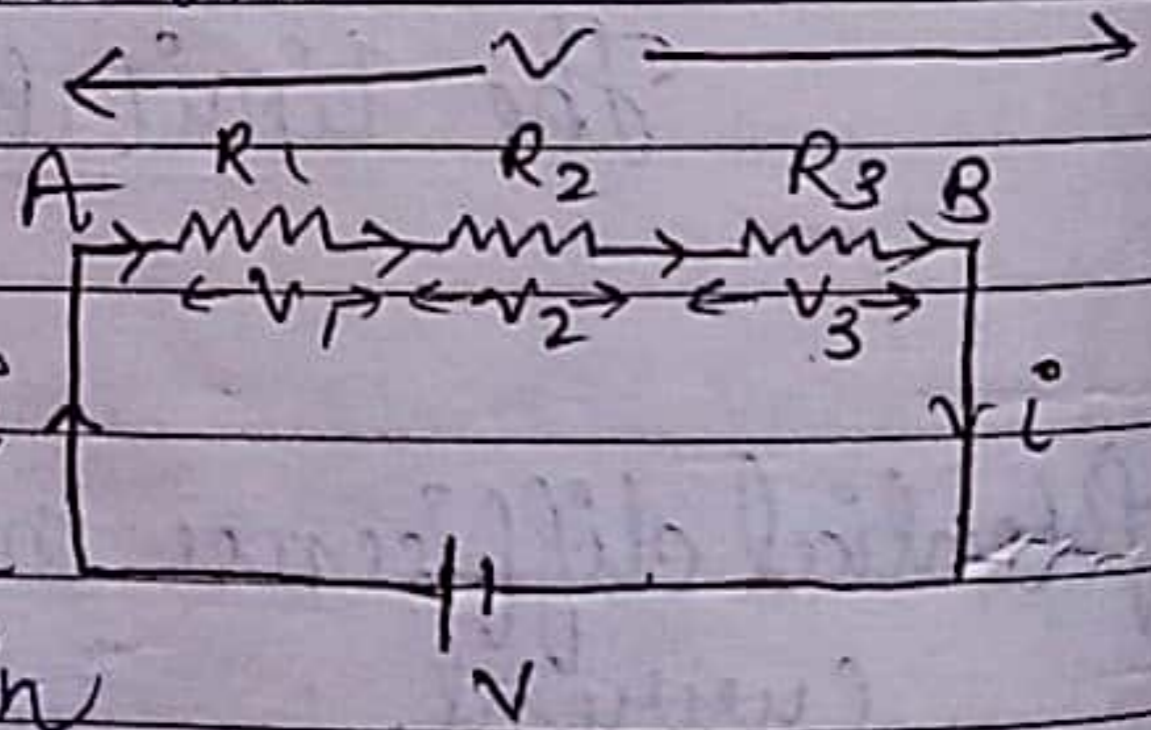 V
A R1 R2 R3 B
V1 V2 V3
i
V